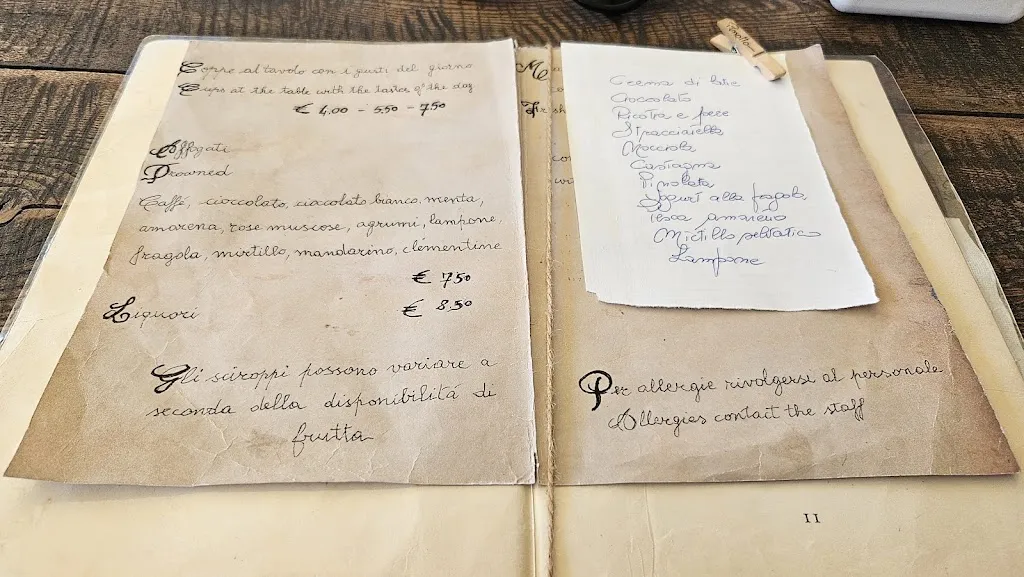 Coppe al tavolo con i gusti del giorno
Cups at the table with the tastes of the day
€ 4,00 - 5,50 - 7,50
Affogati
Drowned
Caffè, cioccolato, cioccolato bianco, menta,
amarena, rose muscose, agrumi, lampone,
fragola, mirtillo, mandarino, clementine
€ 7,50
Liquori € 8,50
Gli sciroppi possono variare a
seconda della disponibilitá di
frutta
Crema di latte
Cioccolato
Ricotta e pere
Stracciatella
Nocciola
Castagna
Pinolata
Yogurt alla fragola
Pesca amareno
Mirtillo selvatico
Lampone
Per allergie rivolgersi al personale
Allergies contact the staff
II